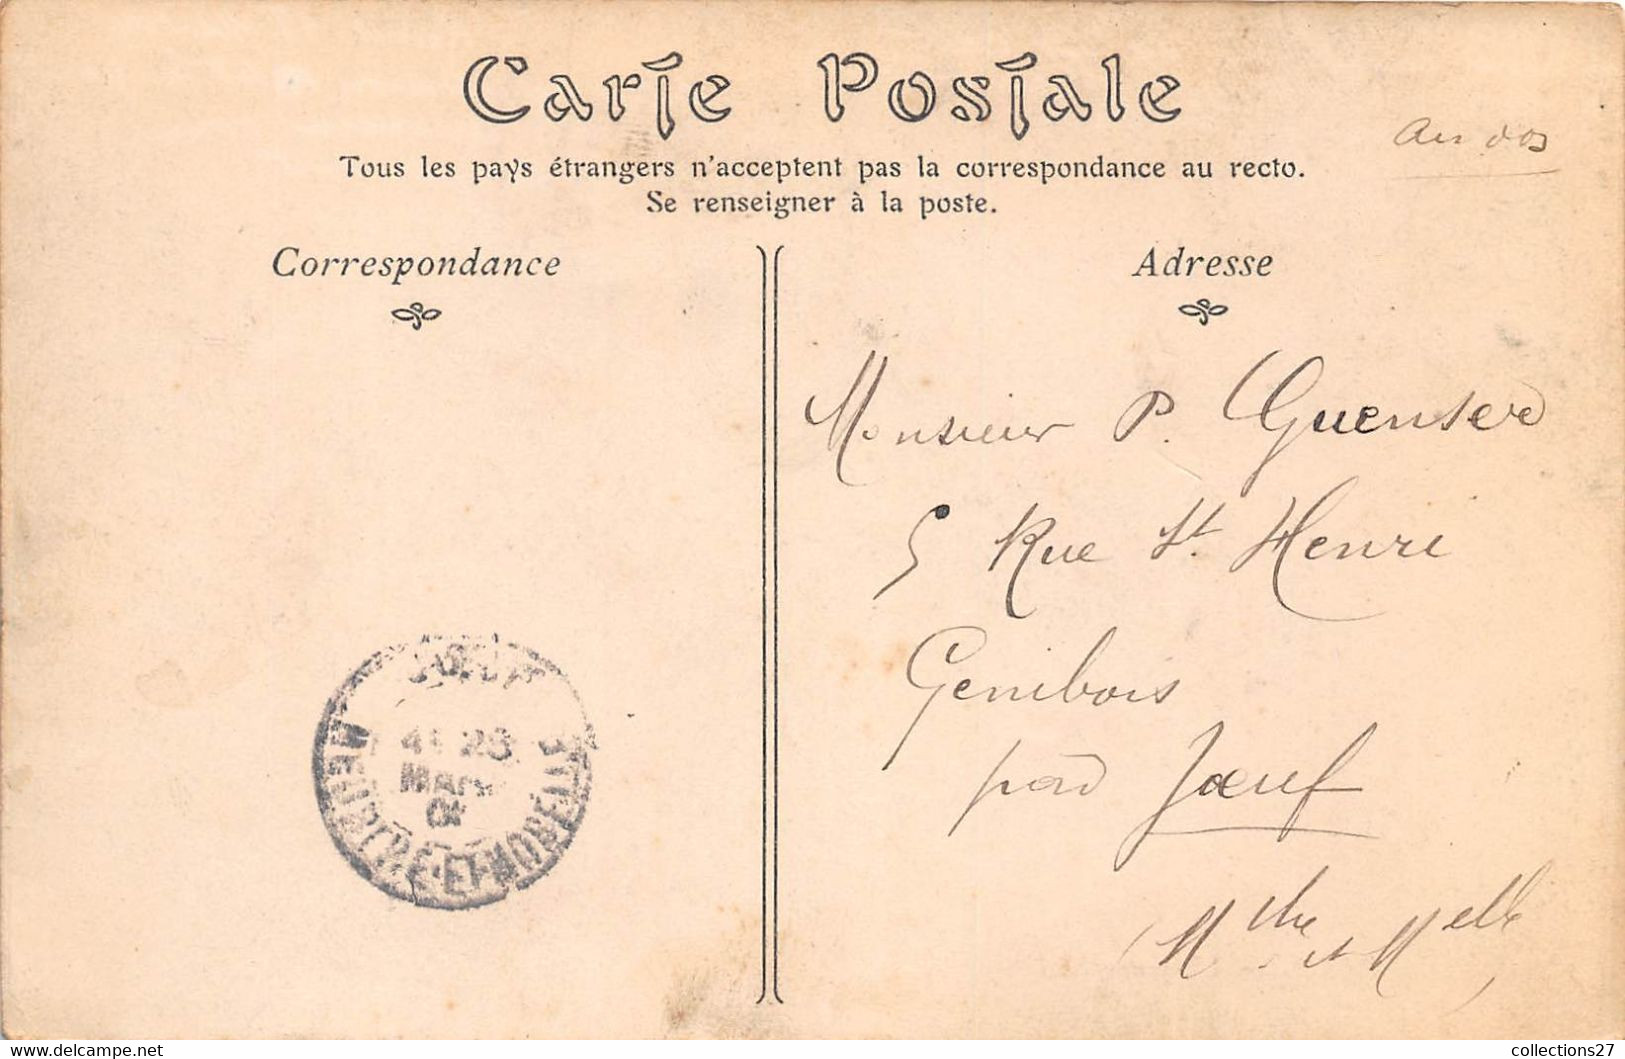 Carte Postale
Tous les pays étrangers n'acceptent pas la correspondance au recto.
Se renseigner à la poste.
Au dos
Correspondance
Adresse
Monsieur P. Guenser
5 Rue St. Henri
Genibois
par Jœuf
(Mthe et Melle)
JŒUF
28
MEURTHE-ET-MOSELLE
collections27